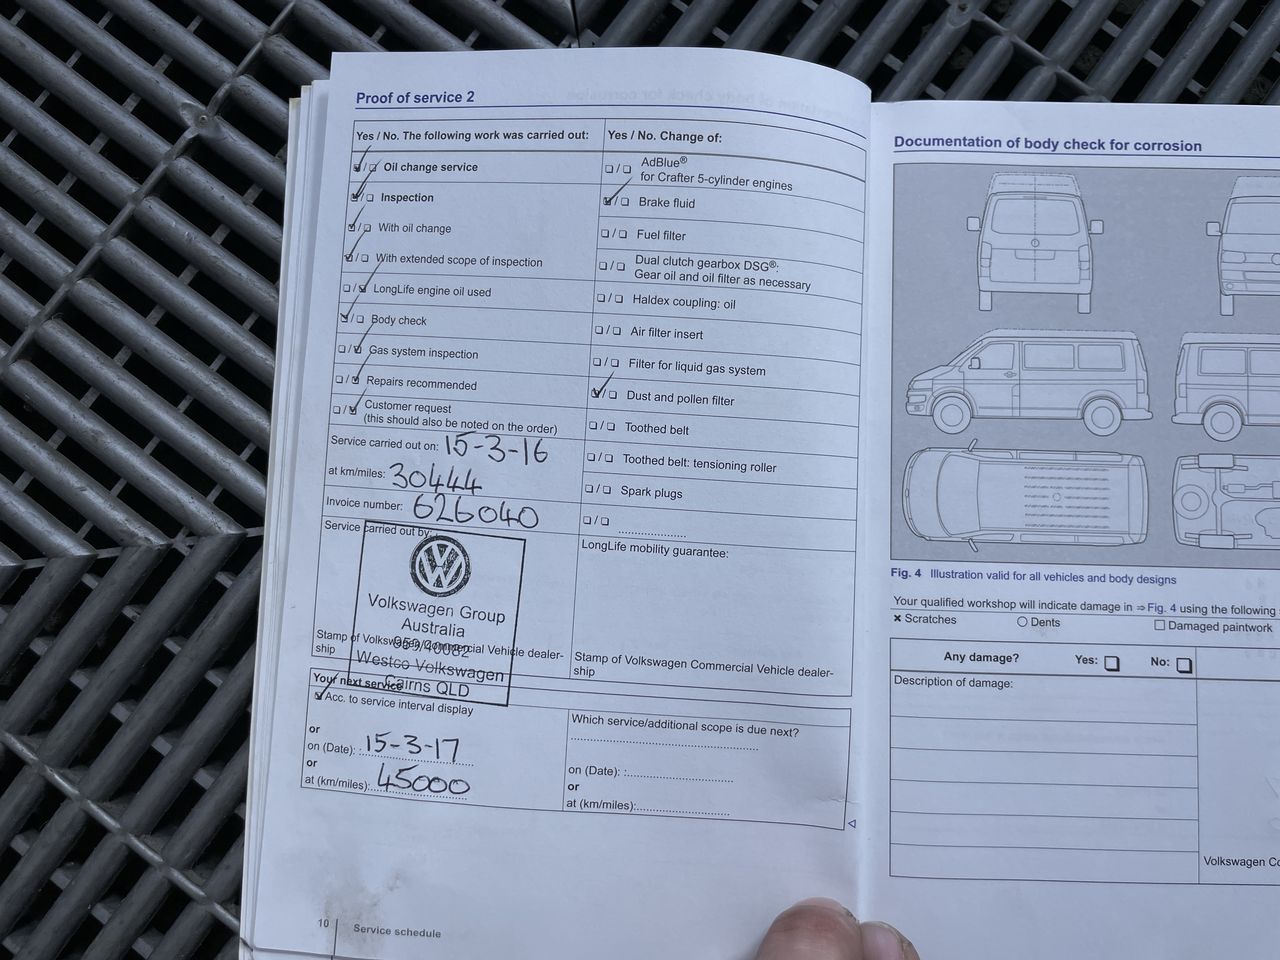 Proof of service 2
Yes / No. The following work was carried out:
Oil change service
Inspection
With oil change
With extended scope of inspection
LongLife engine oil used
Body check
Gas system inspection
Repairs recommended
Customer request
(this should also be noted on the order)
Service carried out on: 15-3-16
at km/miles: 30444
Invoice number: 626040
Service carried out by:
Volkswagen Group
Australia
959/40082
Westco Volkswagen
Cairns QLD
Stamp of Volkswagen Commercial Vehicle dealer-
ship
Yes / No. Change of:
AdBlue®
for Crafter 5-cylinder engines
Brake fluid
Fuel filter
Dual clutch gearbox DSG®:
Gear oil and oil filter as necessary
Haldex coupling: oil
Air filter insert
Filter for liquid gas system
Dust and pollen filter
Toothed belt
Toothed belt: tensioning roller
Spark plugs
LongLife mobility guarantee:
Stamp of Volkswagen Commercial Vehicle dealer-
ship
Your next service
Acc. to service interval display
or
on (Date): 15-3-17
or
at (km/miles): 45000
Which service/additional scope is due next?
on (Date):
or
at (km/miles):
10 Service schedule
Documentation of body check for corrosion
Fig. 4 Illustration valid for all vehicles and body designs
Your qualified workshop will indicate damage in ⇒ Fig. 4 using the following
× Scratches ○ Dents □ Damaged paintwork
Any damage? Yes: No:
Description of damage:
Volkswagen